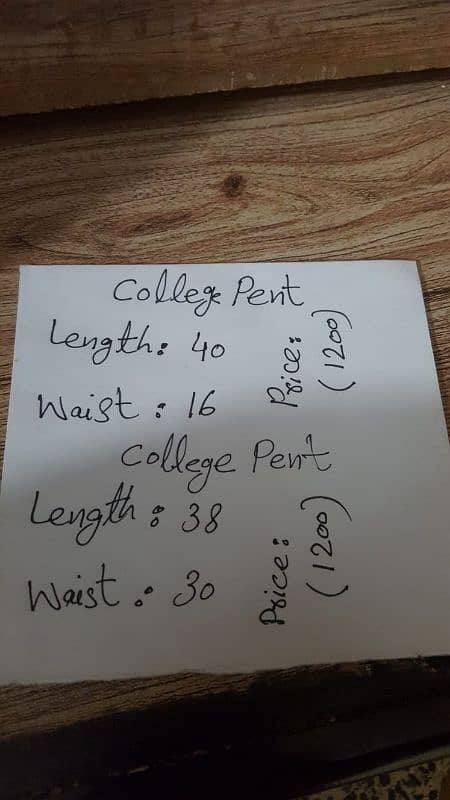 College Pent
Length: 40
Waist : 16
Price:
(1200)
College Pent
Length : 38
Waist : 30
Price:
(1200)